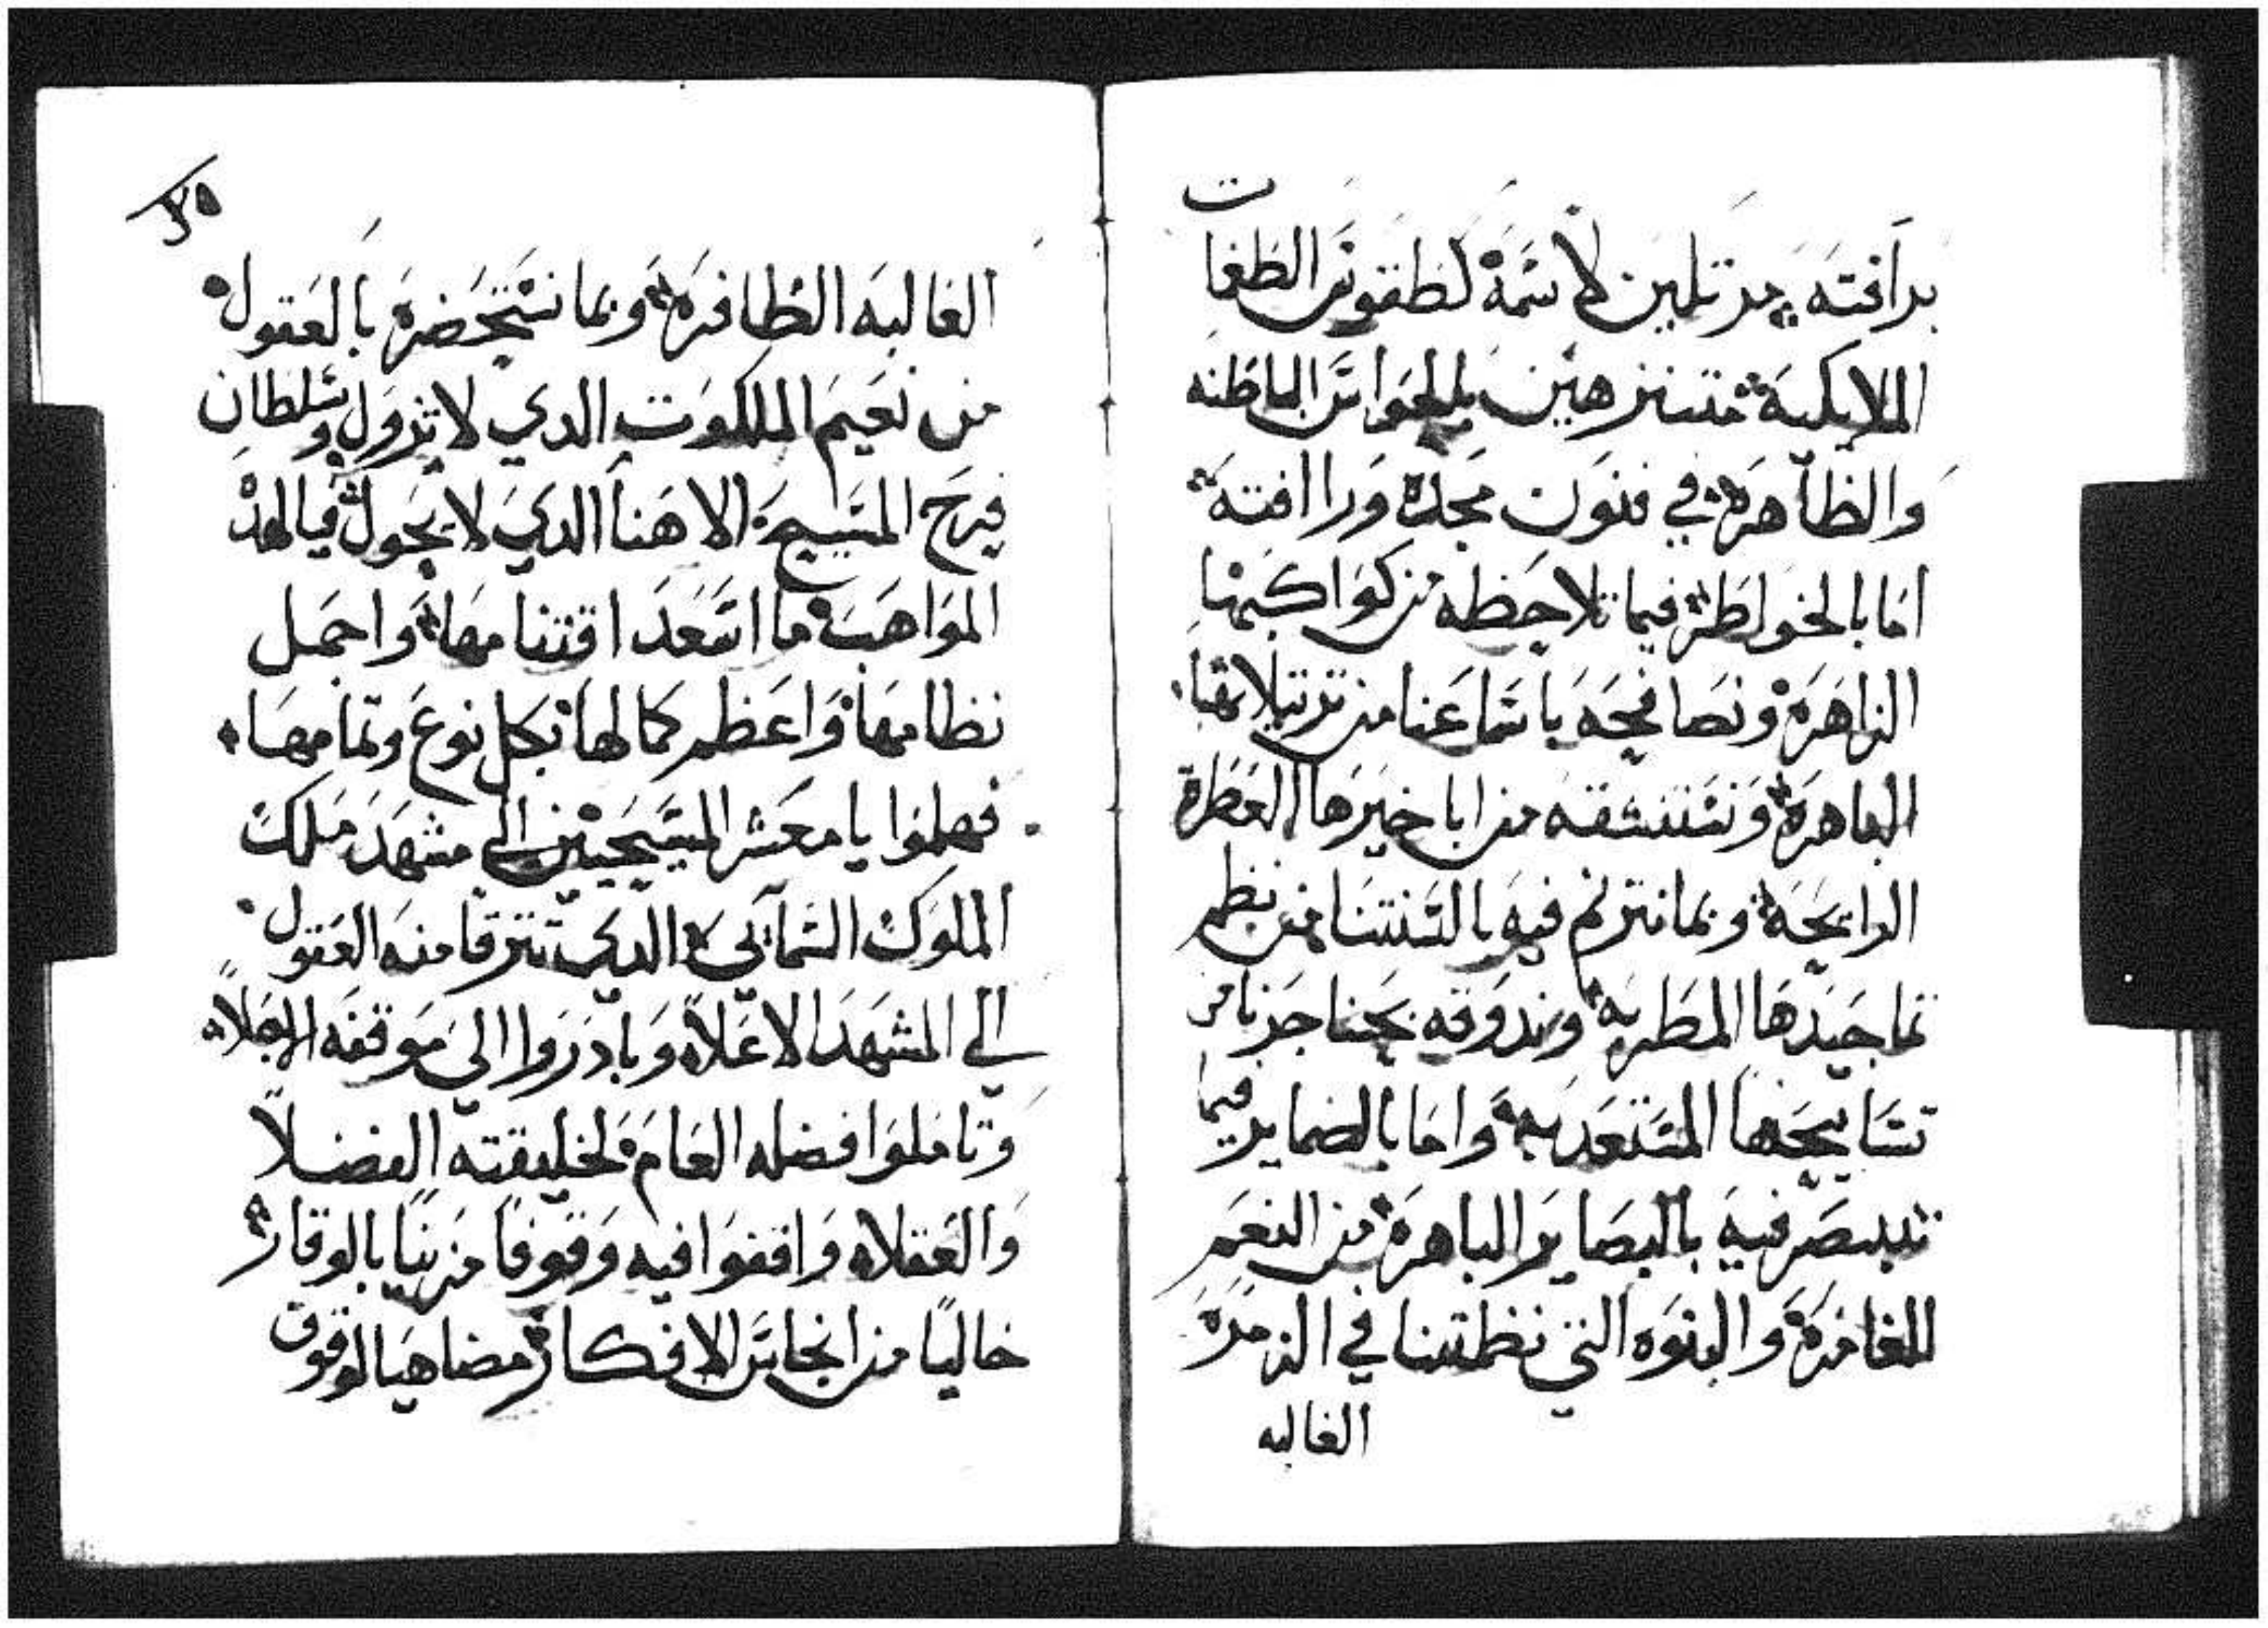 برافته مرتلين لاسمه لطقوس الطغمات
الملايكية متنزهين بالحواس الباطنه
والظاهرة في فنون مجده ورافته
اما بالخواطر فيما تلاحظه من كواكبها
الزاهرة ونصافحه باسماعنا من ترتيلاتها
الباهرة ونستنشقه من اباخيرها العطرة
الرايحة وبما نترنم فيه بالسنتنا من نظم
تماجيدها المطربه وندوقه بحناجرنا من
تسابيحها المستعدبه واما بالضماير فيما
نتبصر فيه بالبصاير الباهرة من النعم
الغامرة والبنوه التي نظمتنا في الزمرة
الغالبه
٣٥
الغالبه الظافره وبما نستحضره بالعقول
من نعيم الملكوت الدي لا يزول وسلطان
فرح المسيح الاهنا الدي لا يحول فيالهده
المواهب ما اسعد اقتنامها واجمل
نظامها واعظم كمالها بكل نوع وتمامها
فهلموا يا معشر المسيحيين الي مشهد ملك
الملوك السمآيي الدي تترقا منه العقول
الي المشهد الاعلا وبادروا الي موقفه الاجلا
وتاملوا فضله العام لخليقته الفضلا
والعقلاه واقفوا فيه وقوفا مزينا بالوقار
خاليا من انجاس الافكار مضاهيا لوقوف